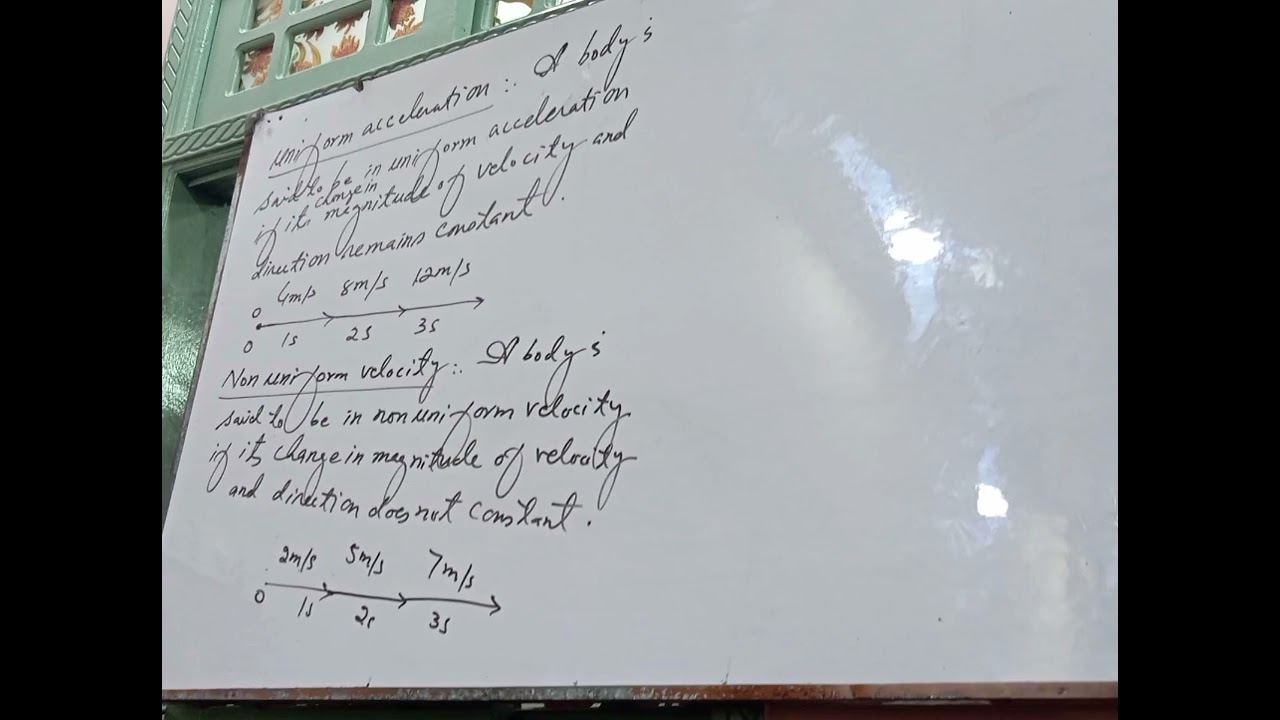 uniform acceleration :. A body is
said to be in uniform acceleration
if its change in magnitude of velocity and
direction remains constant.
0 4m/s 8m/s 12m/s
0 1s 2s 3s
Non uniform velocity :. A body is
said to be in non uniform velocity
if its change in magnitude of velocity
and direction does not constant.
2m/s 5m/s 7m/s
0 1s 2s 3s